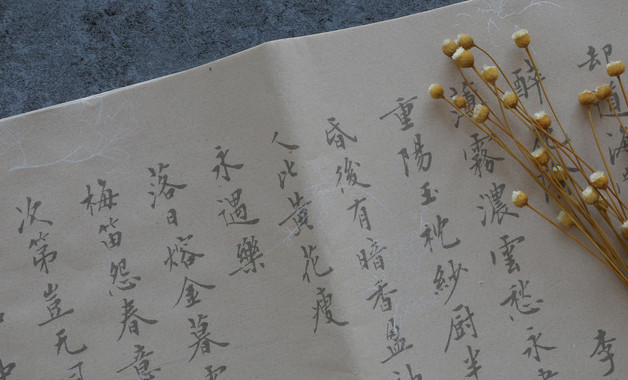 却道海
醉花陰 李
薄霧濃雲愁永
重陽玉枕紗厨半
昏後有暗香盈
人比黃花瘦
永遇樂
落日熔金暮
梅笛怨春意
次第豈无